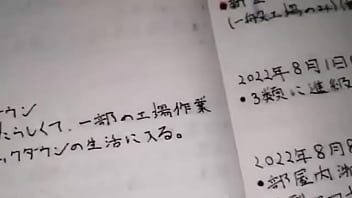 ウン
らしくて、一部の工場作業
ックダウンの生活に入る。
(一部工場のみ)
2022年8月1日
・3類に進級
2022年8月8
・部屋内